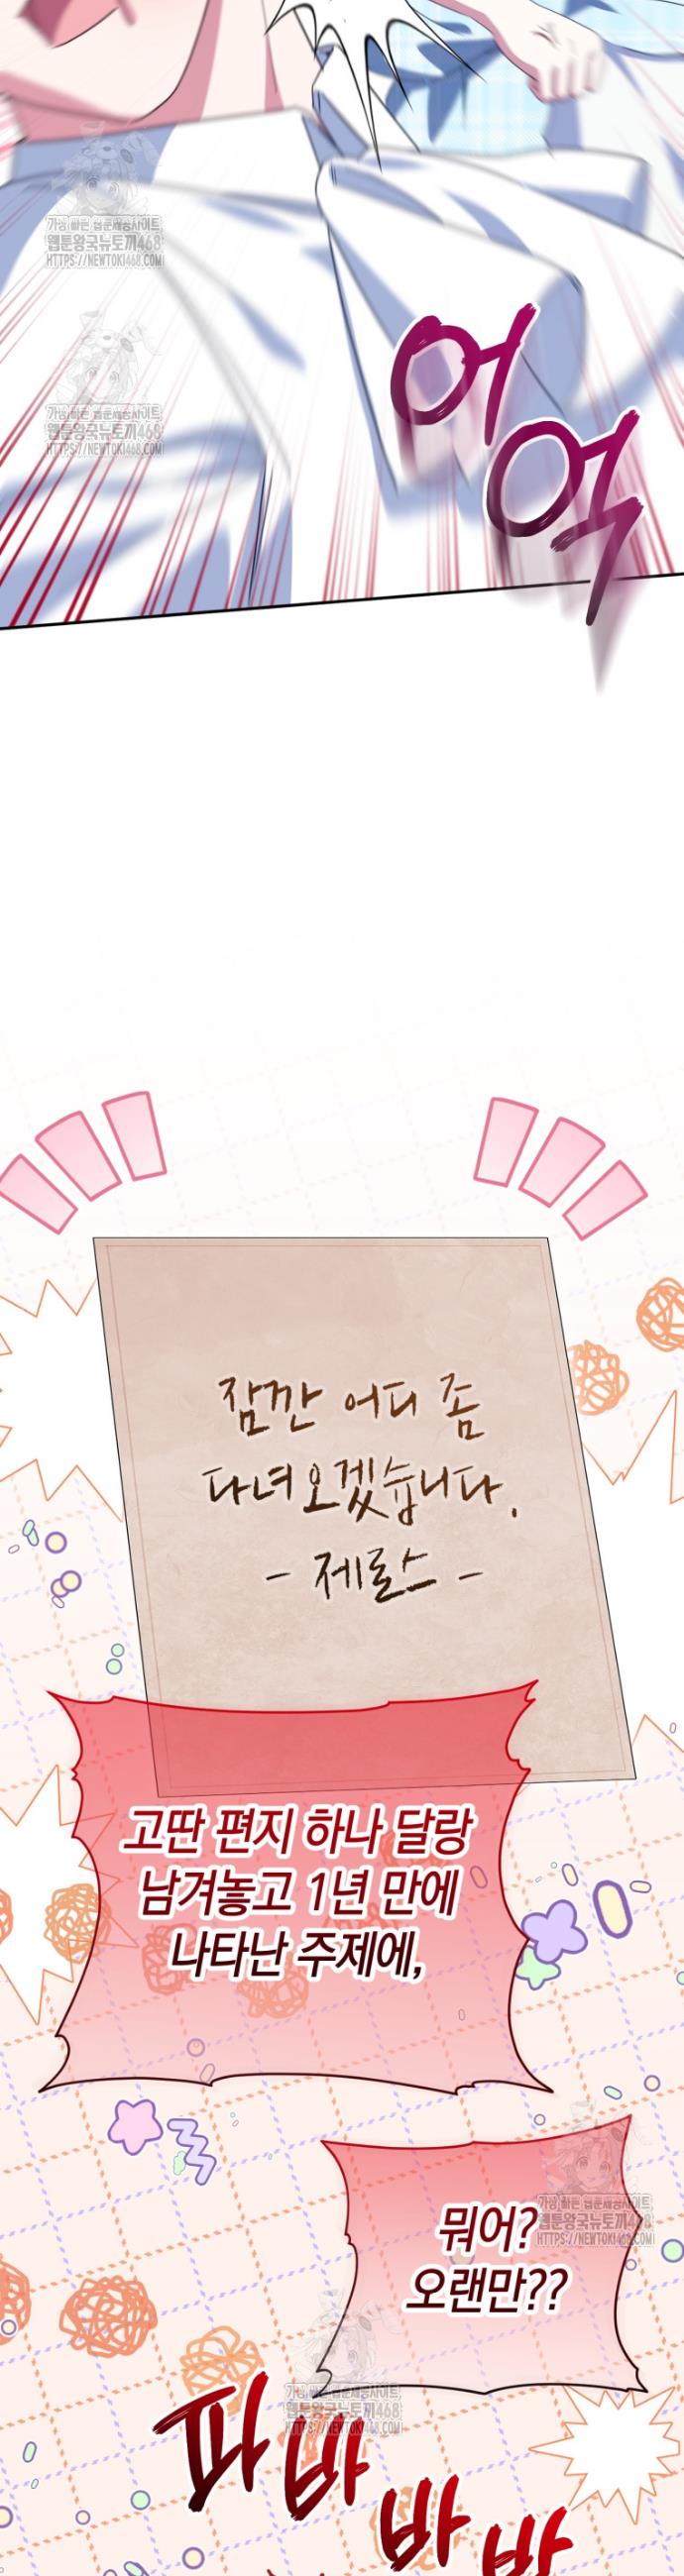 가장 빠른 웹툰제공사이트
웹툰왕국뉴토끼468
HTTPS://NEWTOKI468.COM
가장 빠른 웹툰제공사이트
웹툰왕국뉴토끼468
HTTPS://NEWTOKI468.COM
어
억
잠깐 어디 좀
다녀오겠습니다.
- 제로스 -
고딴 편지 하나 달랑
남겨놓고 1년 만에
나타난 주제에,
가장 빠른 웹툰제공사이트
웹툰왕국뉴토끼468
HTTPS://NEWTOKI468.COM
뭐어?
오랜만??
가장 빠른 웹툰제공사이트
웹툰왕국뉴토끼468
HTTPS://NEWTOKI468.COM
파바바바